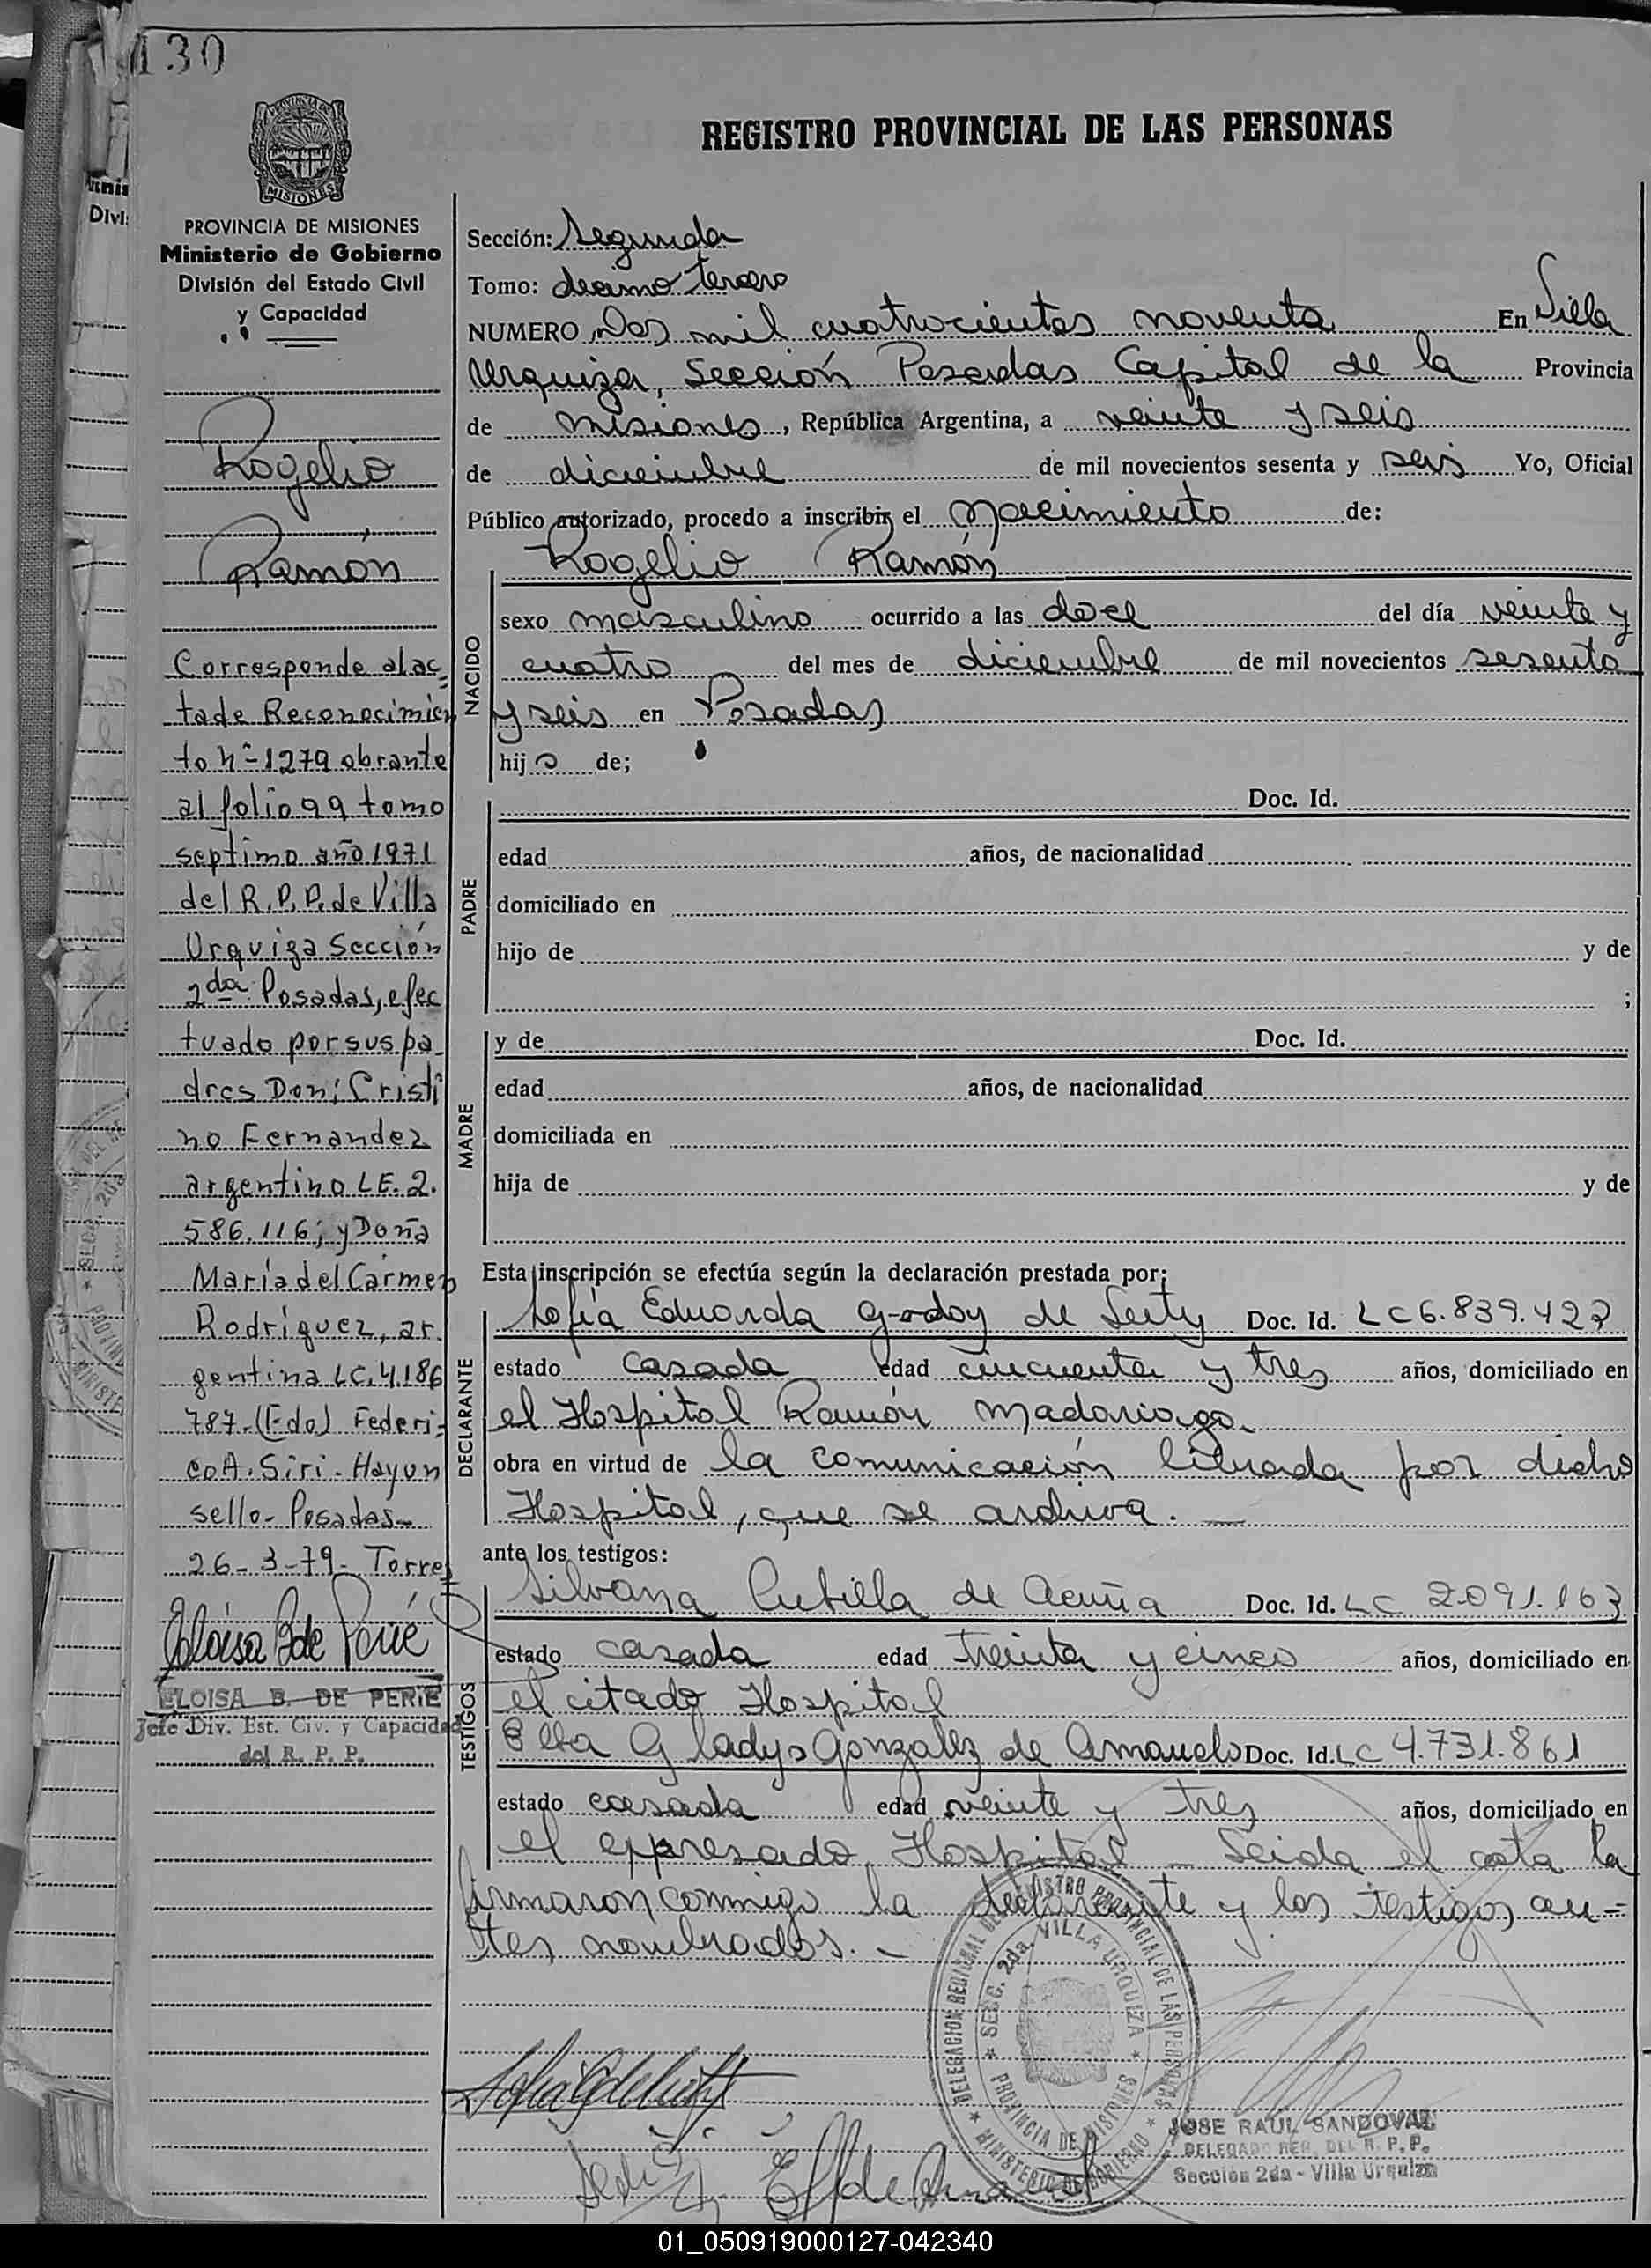 130
PROVINCIA DE MISIONES
PROVINCIA DE MISIONES
Ministerio de Gobierno
División del Estado Civil
y Capacidad
Rogelio
Ramon
Corresponde al ac
ta de Reconocimien
to Nº 1279 obrante
al folio 99 tomo
septimo año 1971
del R.P.P. de Villa
Urquiza Sección
2da Posadas, efec
tuado por sus pa
dres Don; Cristi
no Fernandez
argentino LE. 2.
586.116; y Doña
María del Carmen
Rodríguez, ar
gentina LC. 4.186
787.-(Fdo) Federi-
co A. Siri - Hay un
sello - Posadas -
26-3-79 - Torres
Eloisa B de Perié
ELOISA B. DE PERIE
Jefe Div. Est. Civ. y Capacidad
del R. P. P.
REGISTRO PROVINCIAL DE LAS PERSONAS
Sección: Segunda
Tomo: decimo tercero
NUMERO Dos mil cuatrocientos noventa En Villa
Urquiza, Sección Posadas Capital de la Provincia
de misiones, República Argentina, a veinte y seis
de diciembre de mil novecientos sesenta y seis Yo, Oficial
Público autorizado, procedo a inscribir el Nacimiento de:
Rogelio Ramón
NACIDO
sexo masculino ocurrido a las doce del día veinte y
cuatro del mes de diciembre de mil novecientos sesenta
y seis en Posadas
hijo de;
PADRE
Doc. Id.
edad años, de nacionalidad
domiciliado en
hijo de y de
;
MADRE
y de Doc. Id.
edad años, de nacionalidad
domiciliada en
hija de y de
Esta inscripción se efectúa según la declaración prestada por;
DECLARANTE
Sofía Eduarda Godoy de Doc. Id. LC 6.839.422
estado casada edad cincuenta y tres años, domiciliado en
el Hospital Ramón Madariaga
obra en virtud de la comunicación librada por dicho
Hospital, que se archiva.
ante los testigos:
TESTIGOS
Silvana Cubilla de Acuña Doc. Id. LC 2091.163
estado casada edad treinta y cinco años, domiciliado en
el citado Hospital
Elba Gladys Gonzalez de Doc. Id. LC 4.731.861
estado casada edad veinte y tres años, domiciliado en
el expresado Hospital - Leida el acta la
firmaron conmigo la declarante y los testigos an-
tes nombrados. -
DELEGACION REGIONAL DEL REGISTRO PROVINCIAL DE LAS PERSONAS
SECC. 2da. VILLA URQUIZA
PROVINCIA DE MISIONES
MINISTERIO DE GOBIERNO
JOSE RAUL SANDOVAL
DELEGADO REG. DEL R. P. P.
Sección 2da - Villa Urquiza
01_050919000127-042340